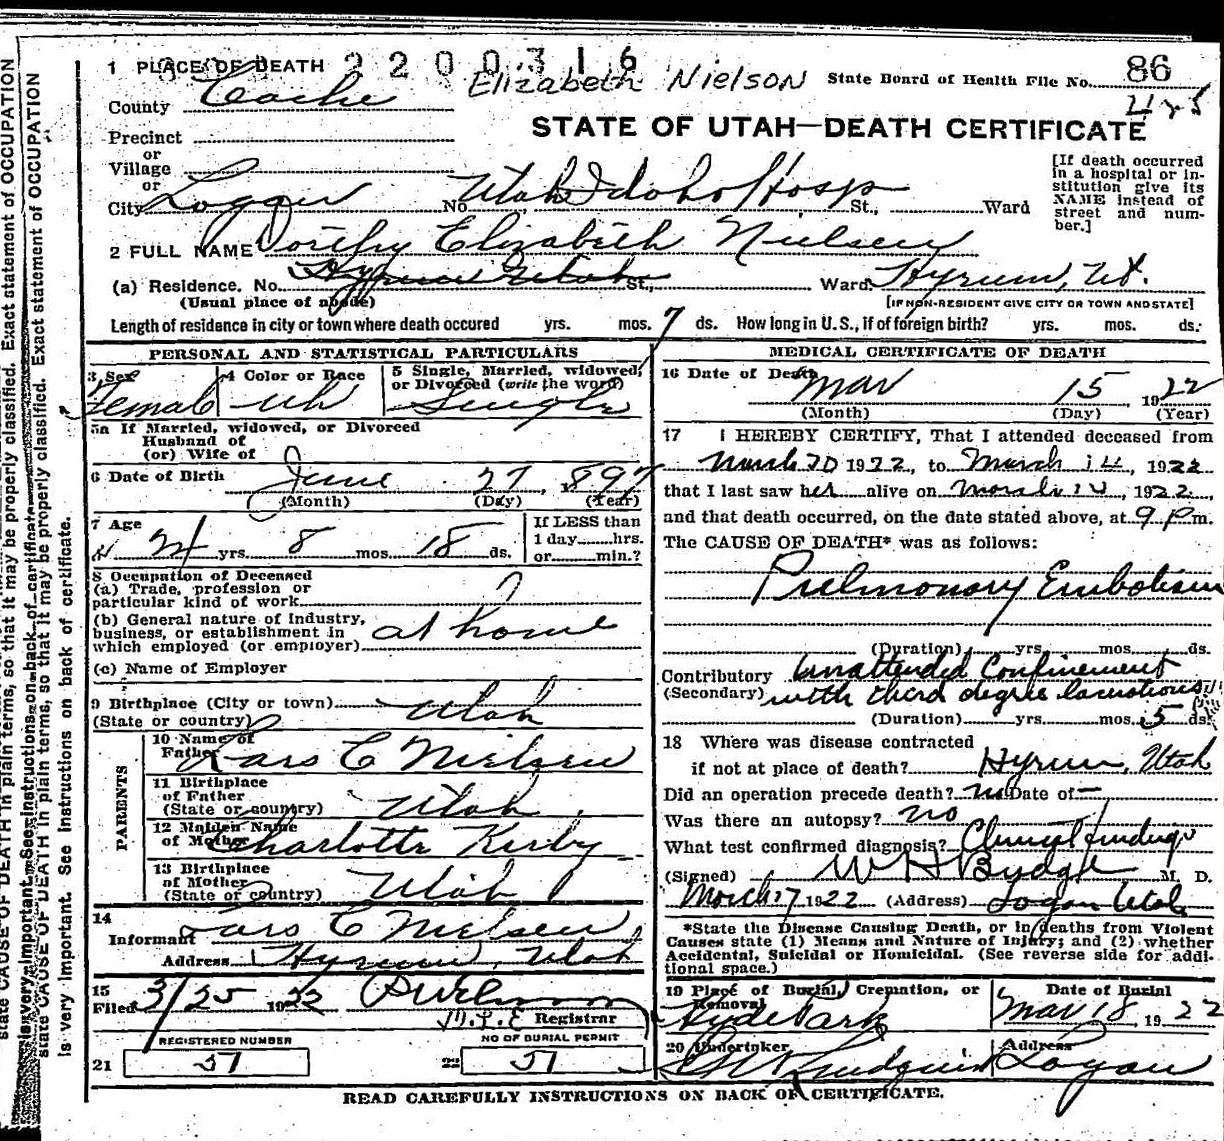 1 PLACE OF DEATH 2200316
Elizabeth Nielson
State Board of Health File No. 86
County Cache
STATE OF UTAH—DEATH CERTIFICATE
Precinct
or
Village
or
City Logan No. Utah Idaho Hosp St., Ward
[If death occurred in a hospital or institution give its NAME instead of street and number.]
2 FULL NAME Dorithy Elizabeth Nielsen
(a) Residence. No. Hyrum Utah St., Ward Hyrum, Ut.
(Usual place of abode)
[IF NON-RESIDENT GIVE CITY OR TOWN AND STATE]
Length of residence in city or town where death occured yrs. mos. 7 ds. How long in U.S., if of foreign birth? yrs. mos. ds.
PERSONAL AND STATISTICAL PARTICULARS
3 Sex Female
4 Color or Race Wh
5 Single, Married, widowed, or Divorced (write the word) Single
5a If Married, widowed, or Divorced
Husband of
(or) Wife of
6 Date of Birth June 27, 1897
(Month) (Day) (Year)
7 Age 24 yrs. 8 mos. 18 ds.
If LESS than
1 day......hrs.
or......min.?
8 Occupation of Deceased
(a) Trade, profession or
particular kind of work
(b) General nature of industry,
business, or establishment in
which employed (or employer) at home
(c) Name of Employer
9 Birthplace (City or town)
(State or country) Utah
PARENTS
10 Name of Father Lars C Nielsen
11 Birthplace
of Father
(State or country) Utah
12 Maiden Name
of Mother Charlotte Kirby
13 Birthplace
of Mother
(State or country) Utah
14
Informant Lars C Nielsen
Address Hyrum, Utah
15
Filed 3/25 1922
Registrar
REGISTERED NUMBER
21 51
NO OF BURIAL PERMIT
22 51
MEDICAL CERTIFICATE OF DEATH
16 Date of Death Mar 15 1922
(Month) (Day) (Year)
17 I HEREBY CERTIFY, That I attended deceased from
March 10 1922, to March 14, 1922
that I last saw her alive on March 14, 1922
and that death occurred, on the date stated above, at 9 P m.
The CAUSE OF DEATH* was as follows:
Pulmonary Embolism
(Duration) yrs. mos. ds.
Contributory Unattended Confinement
(Secondary) with third degree lacerations
(Duration) yrs. mos. 5 ds.
18 Where was disease contracted
if not at place of death? Hyrum, Utah
Did an operation precede death? no Date of —
Was there an autopsy? no
What test confirmed diagnosis? Clinical findings
(Signed) W H Budge M. D.
March 17, 1922 (Address) Logan Utah
*State the Disease Causing Death, or in deaths from Violent
Causes state (1) Means and Nature of Injury; and (2) whether
Accidental, Suicidal or Homicidal. (See reverse side for additional space.)
19 Place of Burial, Cremation, or
Removal Hyde Park
Date of Burial
Mar 18, 1922
20 Undertaker
Lindquist
Address
Logan
READ CAREFULLY INSTRUCTIONS ON BACK OF CERTIFICATE.
state CAUSE OF DEATH in plain terms, so that it may be properly classified. Exact statement of OCCUPATION
is very important. See instructions on back of certificate.